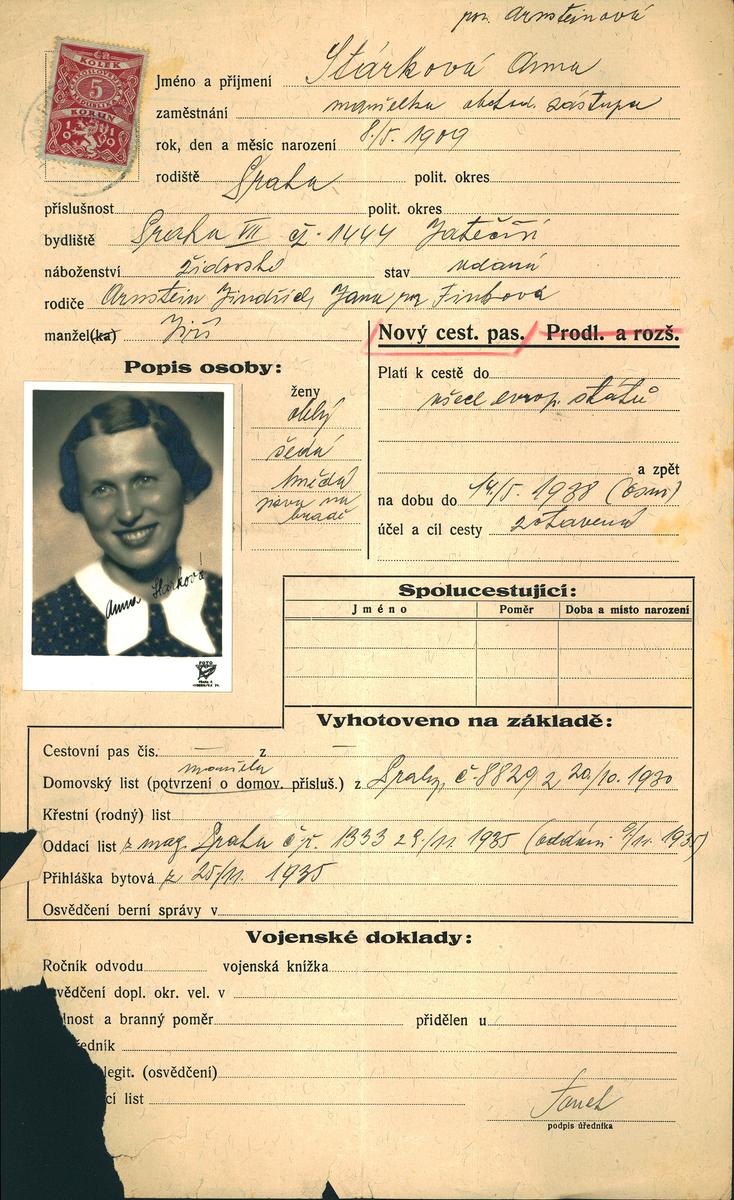 roz. Arnsteinová
KOLEK
5
KORUN
1919
Jméno a příjmení Stárková Anna
zaměstnání manželka obchod. zástupce
rok, den a měsíc narození 8/5. 1909
rodiště Praha polit. okres
příslušnost polit. okres
bydliště Praha VII čp. 1444
náboženství židovské stav vdaná
rodiče Arnstein Jindřich, Jana roz.
manžel(ka) Jiří
Nový cest. pas. Prodl. a rozš.
Popis osoby:
ženy
oblý
šedá
hnědá
na
bradě
Anna Starková
FOTO
Platí k cestě do
všech evrop. států
a zpět
na dobu do 14/5. 1938 (osm)
účel a cíl cesty zotavená
Spolucestující:
Jméno Poměr Doba a místo narození
Vyhotoveno na základě:
Cestovní pas čís. — z —
manžela
Domovský list (potvrzení o domov. přísluš.) z Prahy, č. 8829 z 20/10. 1930
Křestní (rodný) list
Oddací list z mag. Praha č.j. 1333 29/11 1935 (oddáni 9/11. 1935)
Přihláška bytová z 25/11. 1935
Osvědčení berní správy v
Vojenské doklady:
Ročník odvodu vojenská knížka
vědčení dopl. okr. vel. v
lnost a branný poměr přidělen u
ředník
legit. (osvědčení)
cí list
podpis úředníka